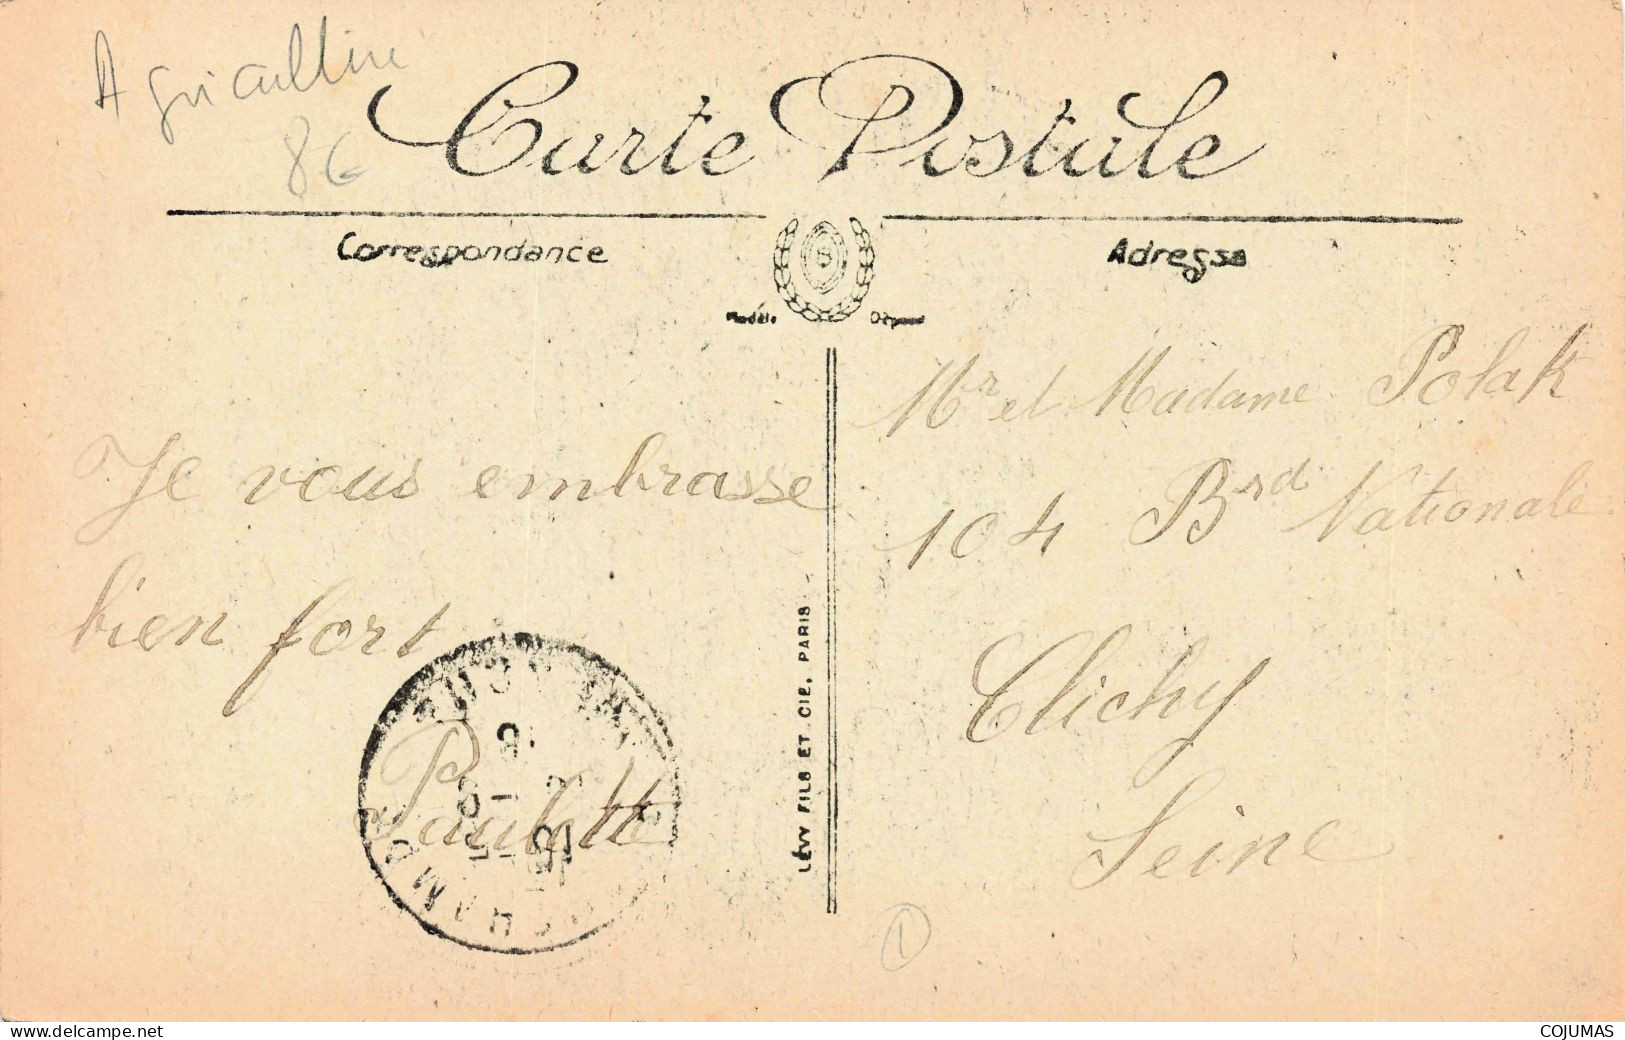 Agriculture
8€
Carte Postale
Correspondance
Adresse
S
Modèle Déposé
Je vous embrasse
bien fort
Paulette
LÉVY FILS ET CIE, PARIS
Mr et Madame Polak
104 Brd Nationale
Clichy
Seine
1
delcampe.net
COJUMAS